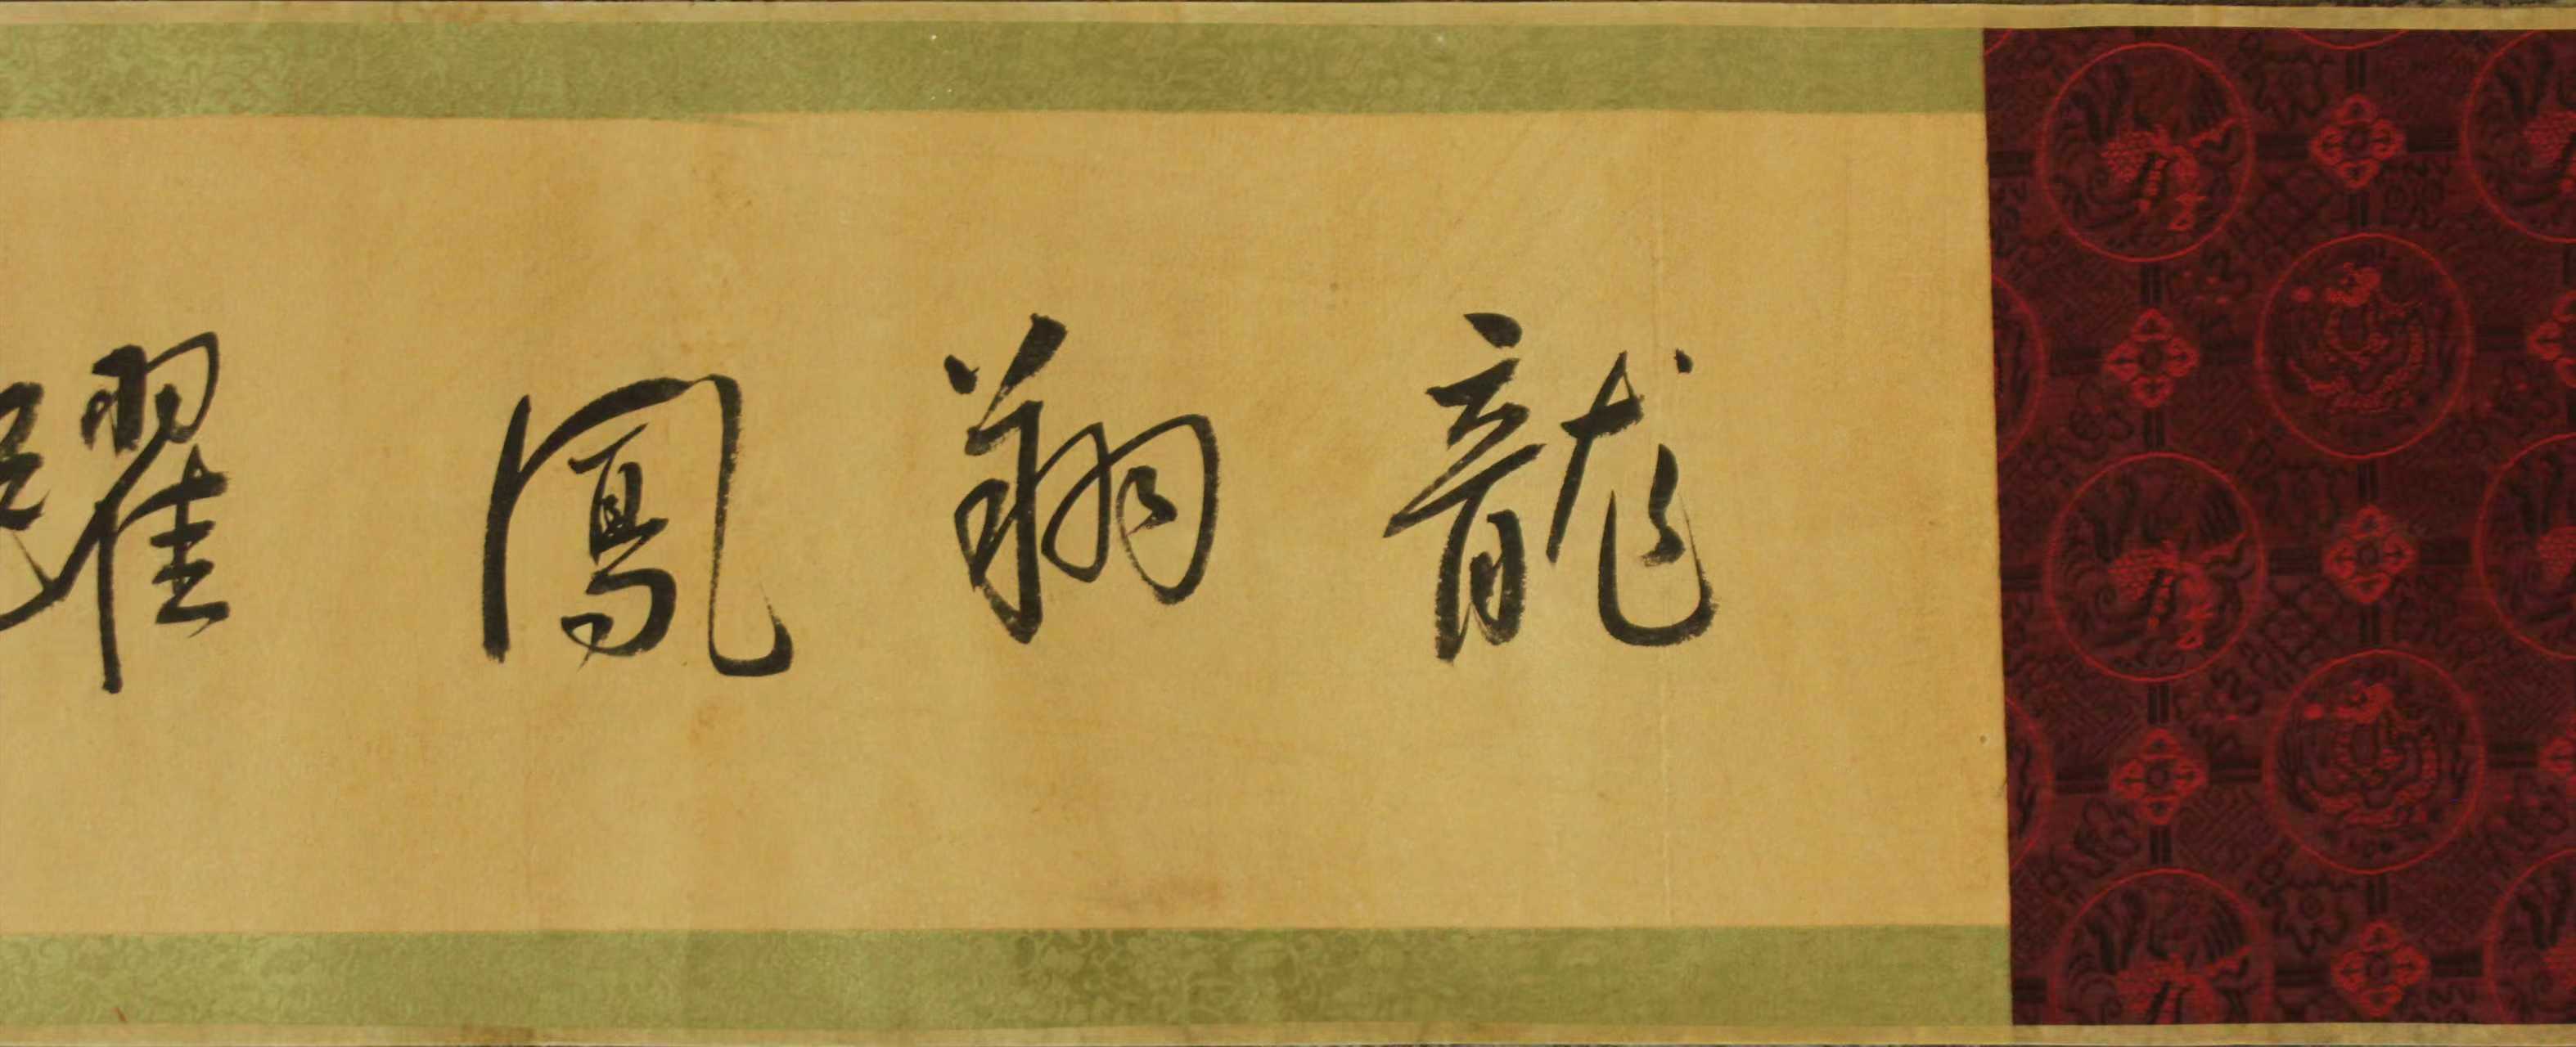 龍翔鳳躍